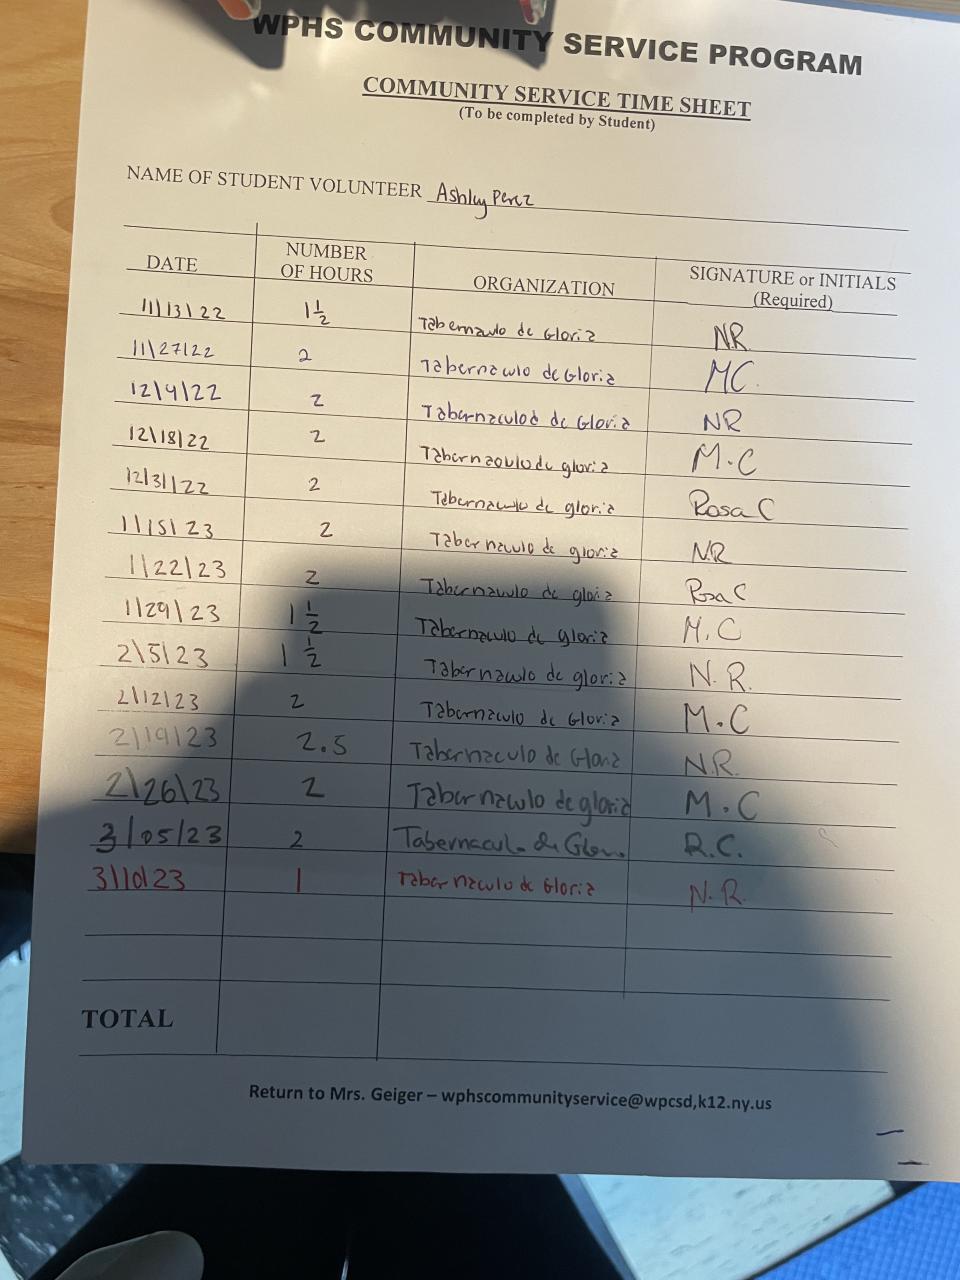 WPHS COMMUNITY SERVICE PROGRAM
COMMUNITY SERVICE TIME SHEET
(To be completed by Student)
NAME OF STUDENT VOLUNTEER Ashley Perez
DATE NUMBER OF HOURS ORGANIZATION SIGNATURE or INITIALS (Required)
11/13/22 1 1/2 Tabernaculo de Gloria NR
11/27/22 2 Tabernaculo de Gloria MC.
12/4/22 2 Tabernaculod de Gloria NR
12/18/22 2 Tabernaculo de gloria M.C
12/31/22 2 Tabernaculo de gloria Rosa C
1/15/23 2 Tabernaculo de gloria N.R
1/22/23 2 Tabernaculo de gloria Rosa C
1/29/23 1 1/2 Tabernaculo de gloria M.C
2/5/23 1 1/2 Tabernaculo de gloria N.R.
2/12/23 2 Tabernaculo de Gloria M.C
2/19/23 2.5 Tabernaculo de Gloria N.R.
2/26/23 2 Tabernaculo de gloria M.C
3/05/23 2 R.C.
3/10/23 1 Tabernaculo de Gloria N.R.
TOTAL
Return to Mrs. Geiger – wphscommunityservice@wpcsd,k12.ny.us